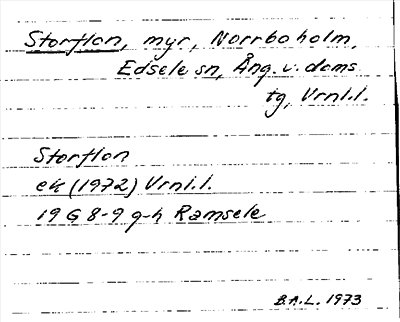 Storflon, myr, Norrboholm,
Edsele sn, Ång. v. doms
tg, Vrnl.l.
Storflon
ek (1972) Vrnl.l.
19 G 8-9 g-h Ramsele
B.A.L. 1973